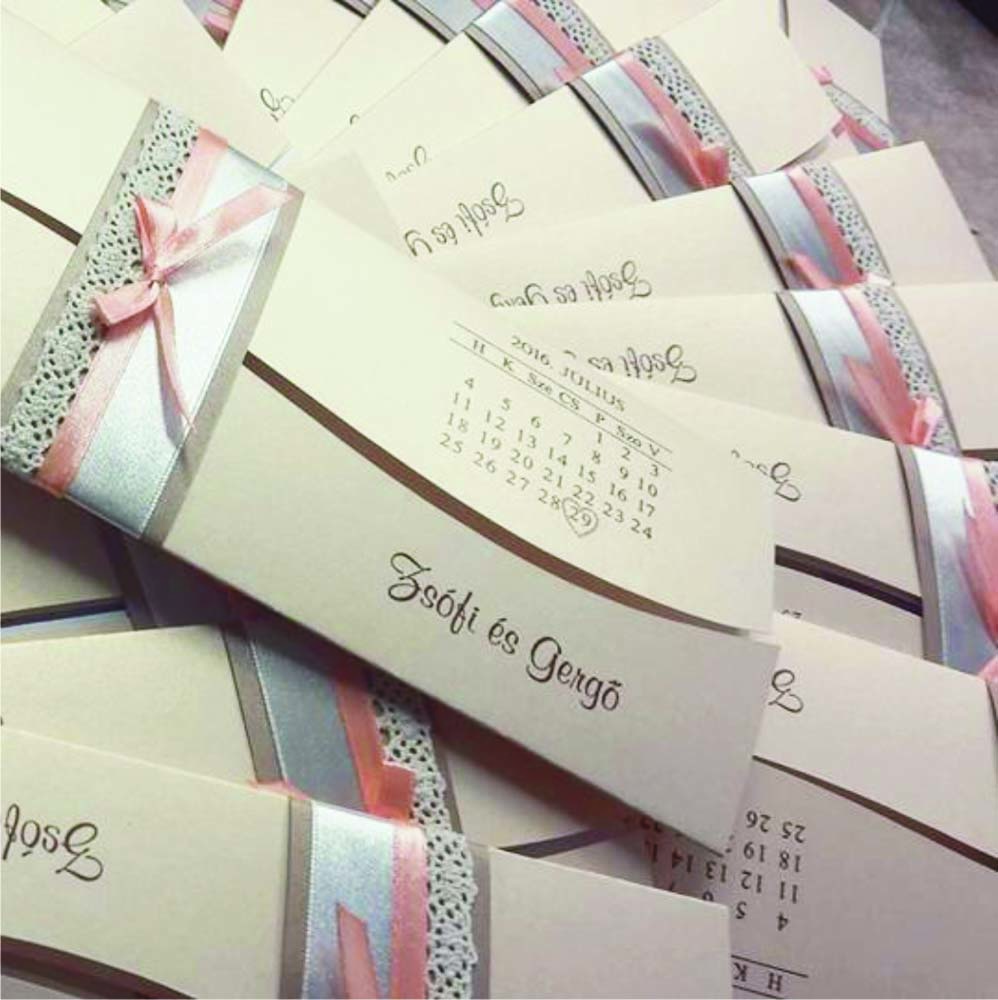 2016. JÚLIUS
H K Sze CS P Szo V
1 2 3
4 5 6 7 8 9 10
11 12 13 14 15 16 17
18 19 20 21 22 23 24
25 26 27 28 29
Zsófi és Gergő
Zsófi és G
Zsófi és Gerg
Zsófi és
Zsóf
Zsófi
Z
H K
4 5 6
11 12 13 14
18 19
25 26